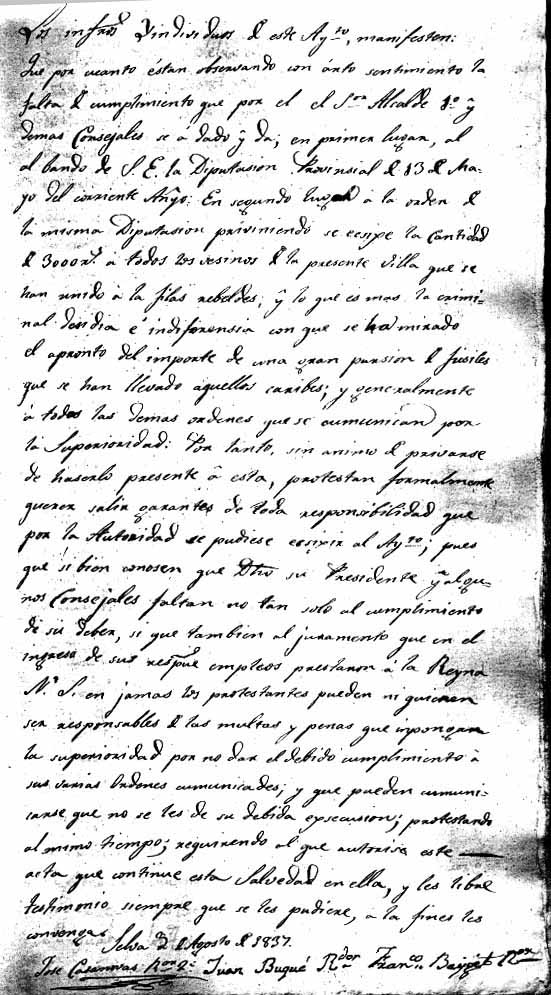 Los infros Yindividuos d este Ayto, manifesten:
Que por cuanto éstan observando con ânto sentimiento la
falta d cumplimiento que por el el Sor Alcalde 1º ÿ
demas Consejales se á dado ÿ da; en primer lugar, al
al bando de S. E. la Diputasion Provinsial d 13 d Ma-
yo del corriente Año: En segundo lugar â la orden d
la misma Diputasion priviniendo se ecsije la Cantidad
d 3000 rs. â todos los vesinos d la presente Villa que se
han unido â la filas rebeldes, ÿ lo que es mas la crimi-
nal desidia e indiferensia con que se ha mirado
el apronto del importe de una gran parsion d fusiles
que se han llevado aquellos caribes; y generalmente
â todas las demas ordenes que se cumunican por
la Superioridad: Por tanto, sin animo d privarse
de haserlo presente â esta, protestan formalmente
querer salir garantes de toda responsibilidad que
por la Autoridad se pudiese ecsixir al Ayto; pues
que si bien conosen que Dho su Presidente ÿ algu-
nos Consejales faltan no tan solo al cumplimiento
de su deber, si que tambien al juramento que en el
ingreso de sus respue empleos prestaron â la Reyna
Nª S. en jamas los protestantes pueden ni quieren
ser responsables d las multas y penas que inpongan
la superioridad por no dar el debido cumplimiento â
sus varias Ordenes cumunicades; y que pueden cumuni-
carse que no se les de su debida eysecusion; protestando
al mimo tiempo; requirendo al que autorise este
acta que continue esta Salvedad en ella, y les libre
testimonio siempre que se les pudiere, a la fines les
convengas Selva d Agosto d 1837.
Jose Casanovas Juan Buqué Rdor Franco Ror